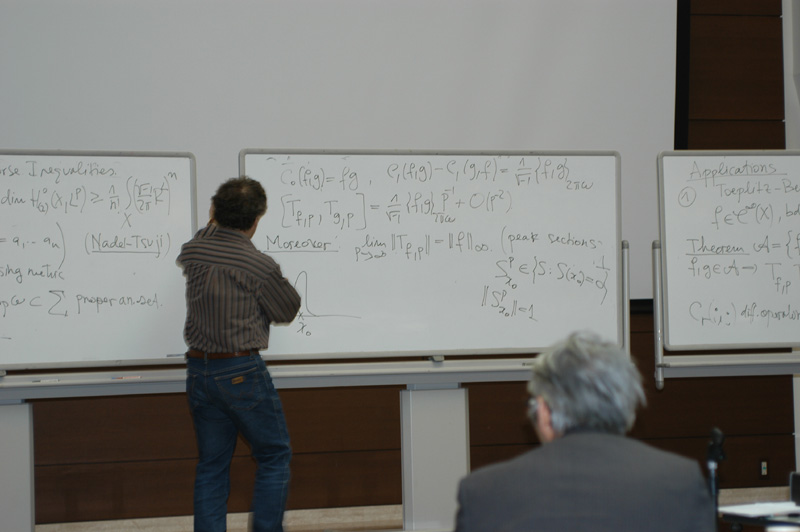 rse Inequalities.
dim H⁰₍₂₎(X, Lᵖ) ≥ 1/n! ∫_X (√-1/2π R^L)ⁿ
= a₁...aₙ) (Nadel-Tsuji)
sing metric
⊂ Σ, proper an. set.
C₀(f,g) = fg , C₁(f,g) - C₁(g,f) = 1/√-1 {f,g}_2πω
[T_f,p, T_g,p] = 1/√-1 {f,g}_2πω p⁻¹ + O(p⁻²)
Moreover: lim_p→∞ ||T_f,p|| = ||f||_∞ (peak sections:
S^p_x₀ ∈ {S: S(x₀) = 0}^⊥
||S^p_x₀|| = 1
x₀
Applications
① Toeplitz-Be
f ∈ C^∞(X),
Theorem A = {f
f,g ∈ A → T_f,p
C_r(·,·) diff. operator